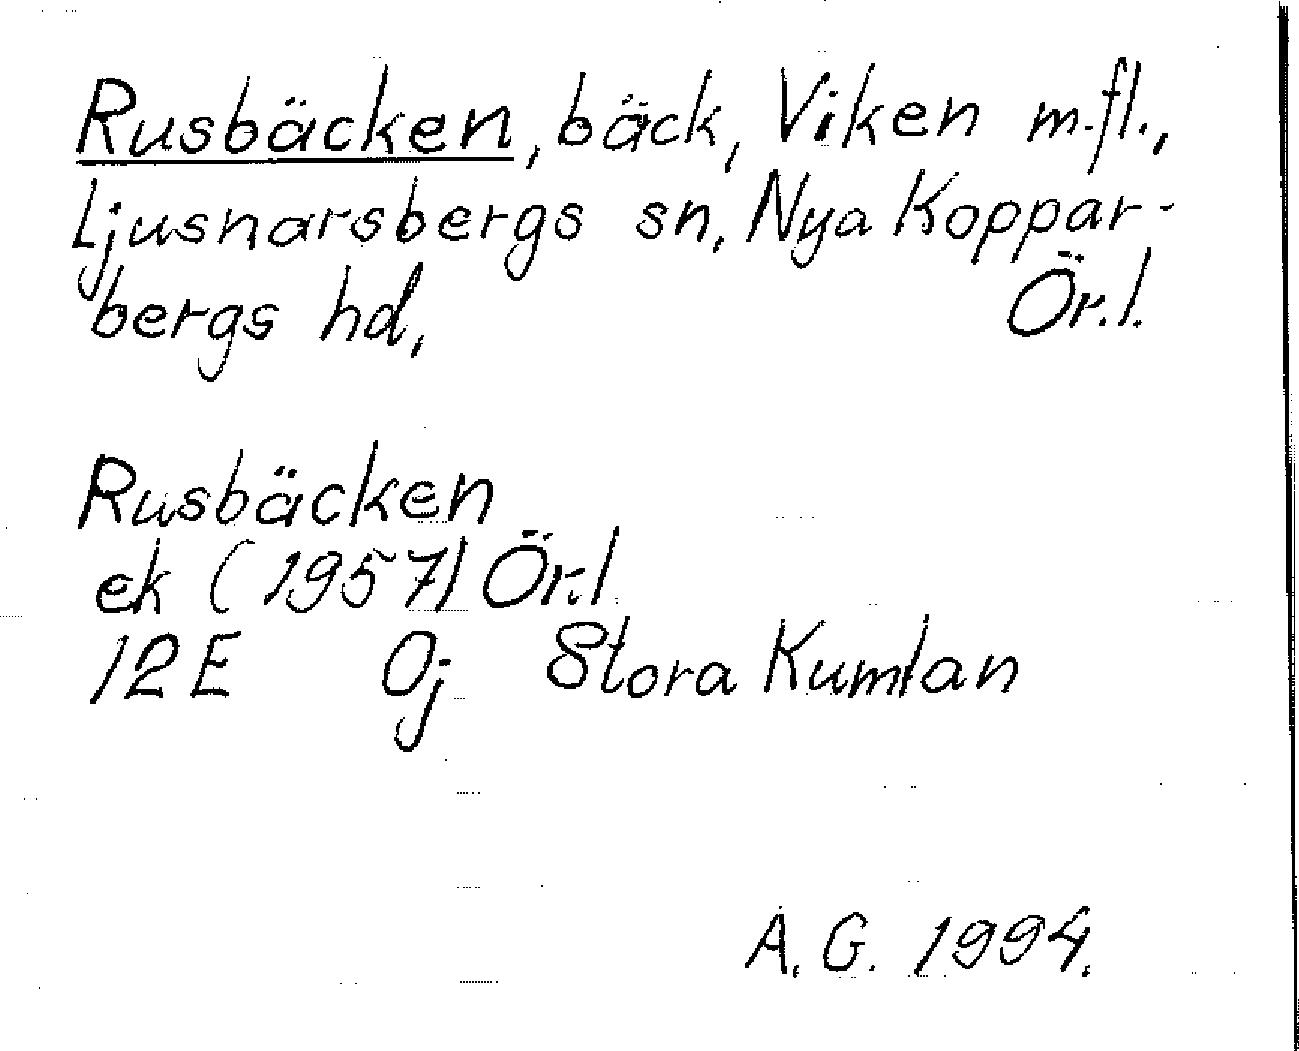 Rusbäcken, bäck, Viken m.fl.,
Ljusnarsbergs sn, Nya Koppar-
bergs hd, Ör.l.
Rusbäcken
ek (1957) Ör.l
12E 0j Stora Kumlan
A.G. 1994.